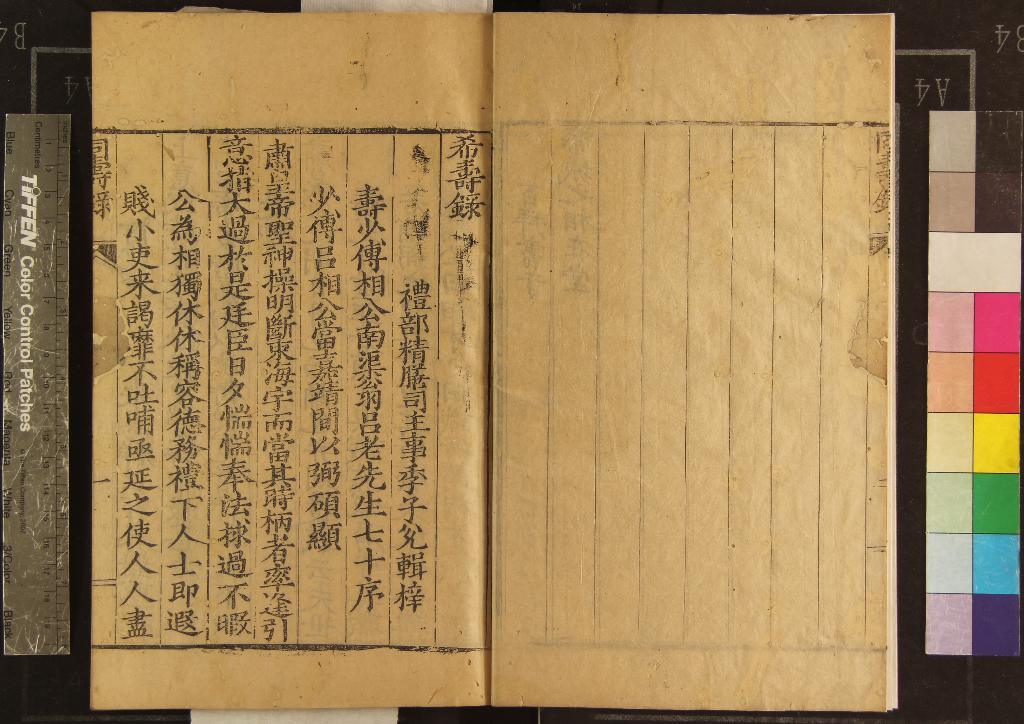 希壽錄
禮部精膳司主事季子兊輯梓
壽少傅相公南渠翁呂老先生七十序
少傅呂相公當嘉靖間以弼碩顯
肅皇帝聖神操明斷東海宇而當其時柄者率逢引
意指大過於是廷臣日夕惴惴奉法捄過不暇
公為相獨休休稱容德務禮下人士即遐
賤小吏来謁靡不吐哺亟延之使人人盡
壽錄
一
TIFFEN Color Control Patches
Blue
Cyan
Green
Yellow
Red
Magenta
White
3/Color
Black
Centimetres
Inches
A4
A4
B4
B4